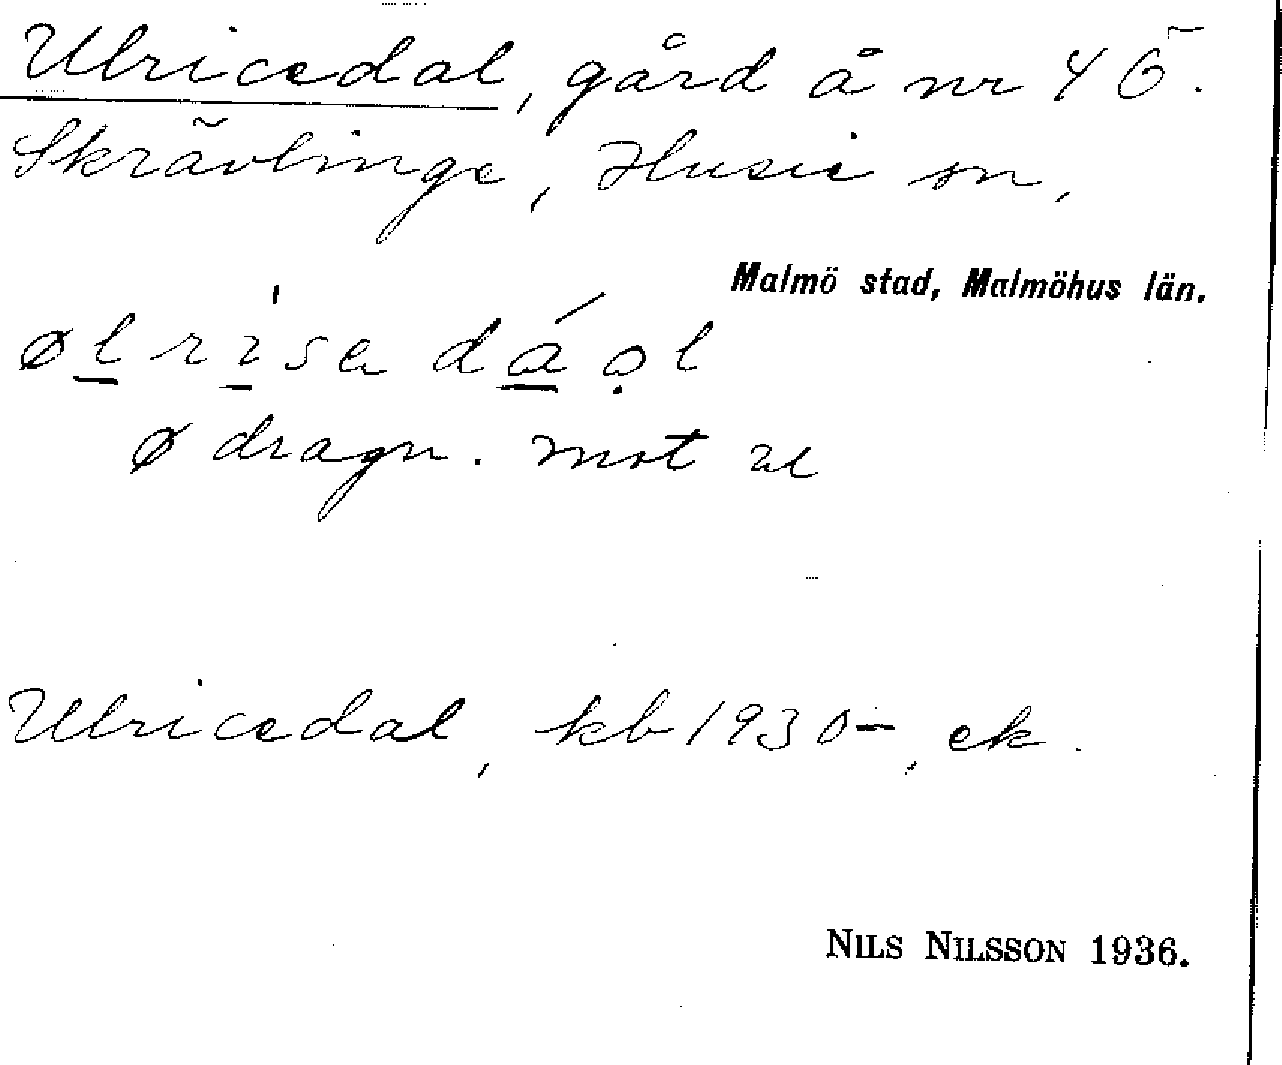 Ulricedal, gård å nr 4 6.
Skrävlinge, Husie sn,
Malmö stad, Malmöhus län.
øl rísa dáọl
ø dragn. mot u
Ulricedal, kb 1930–, ek.
NILS NILSSON 1936.